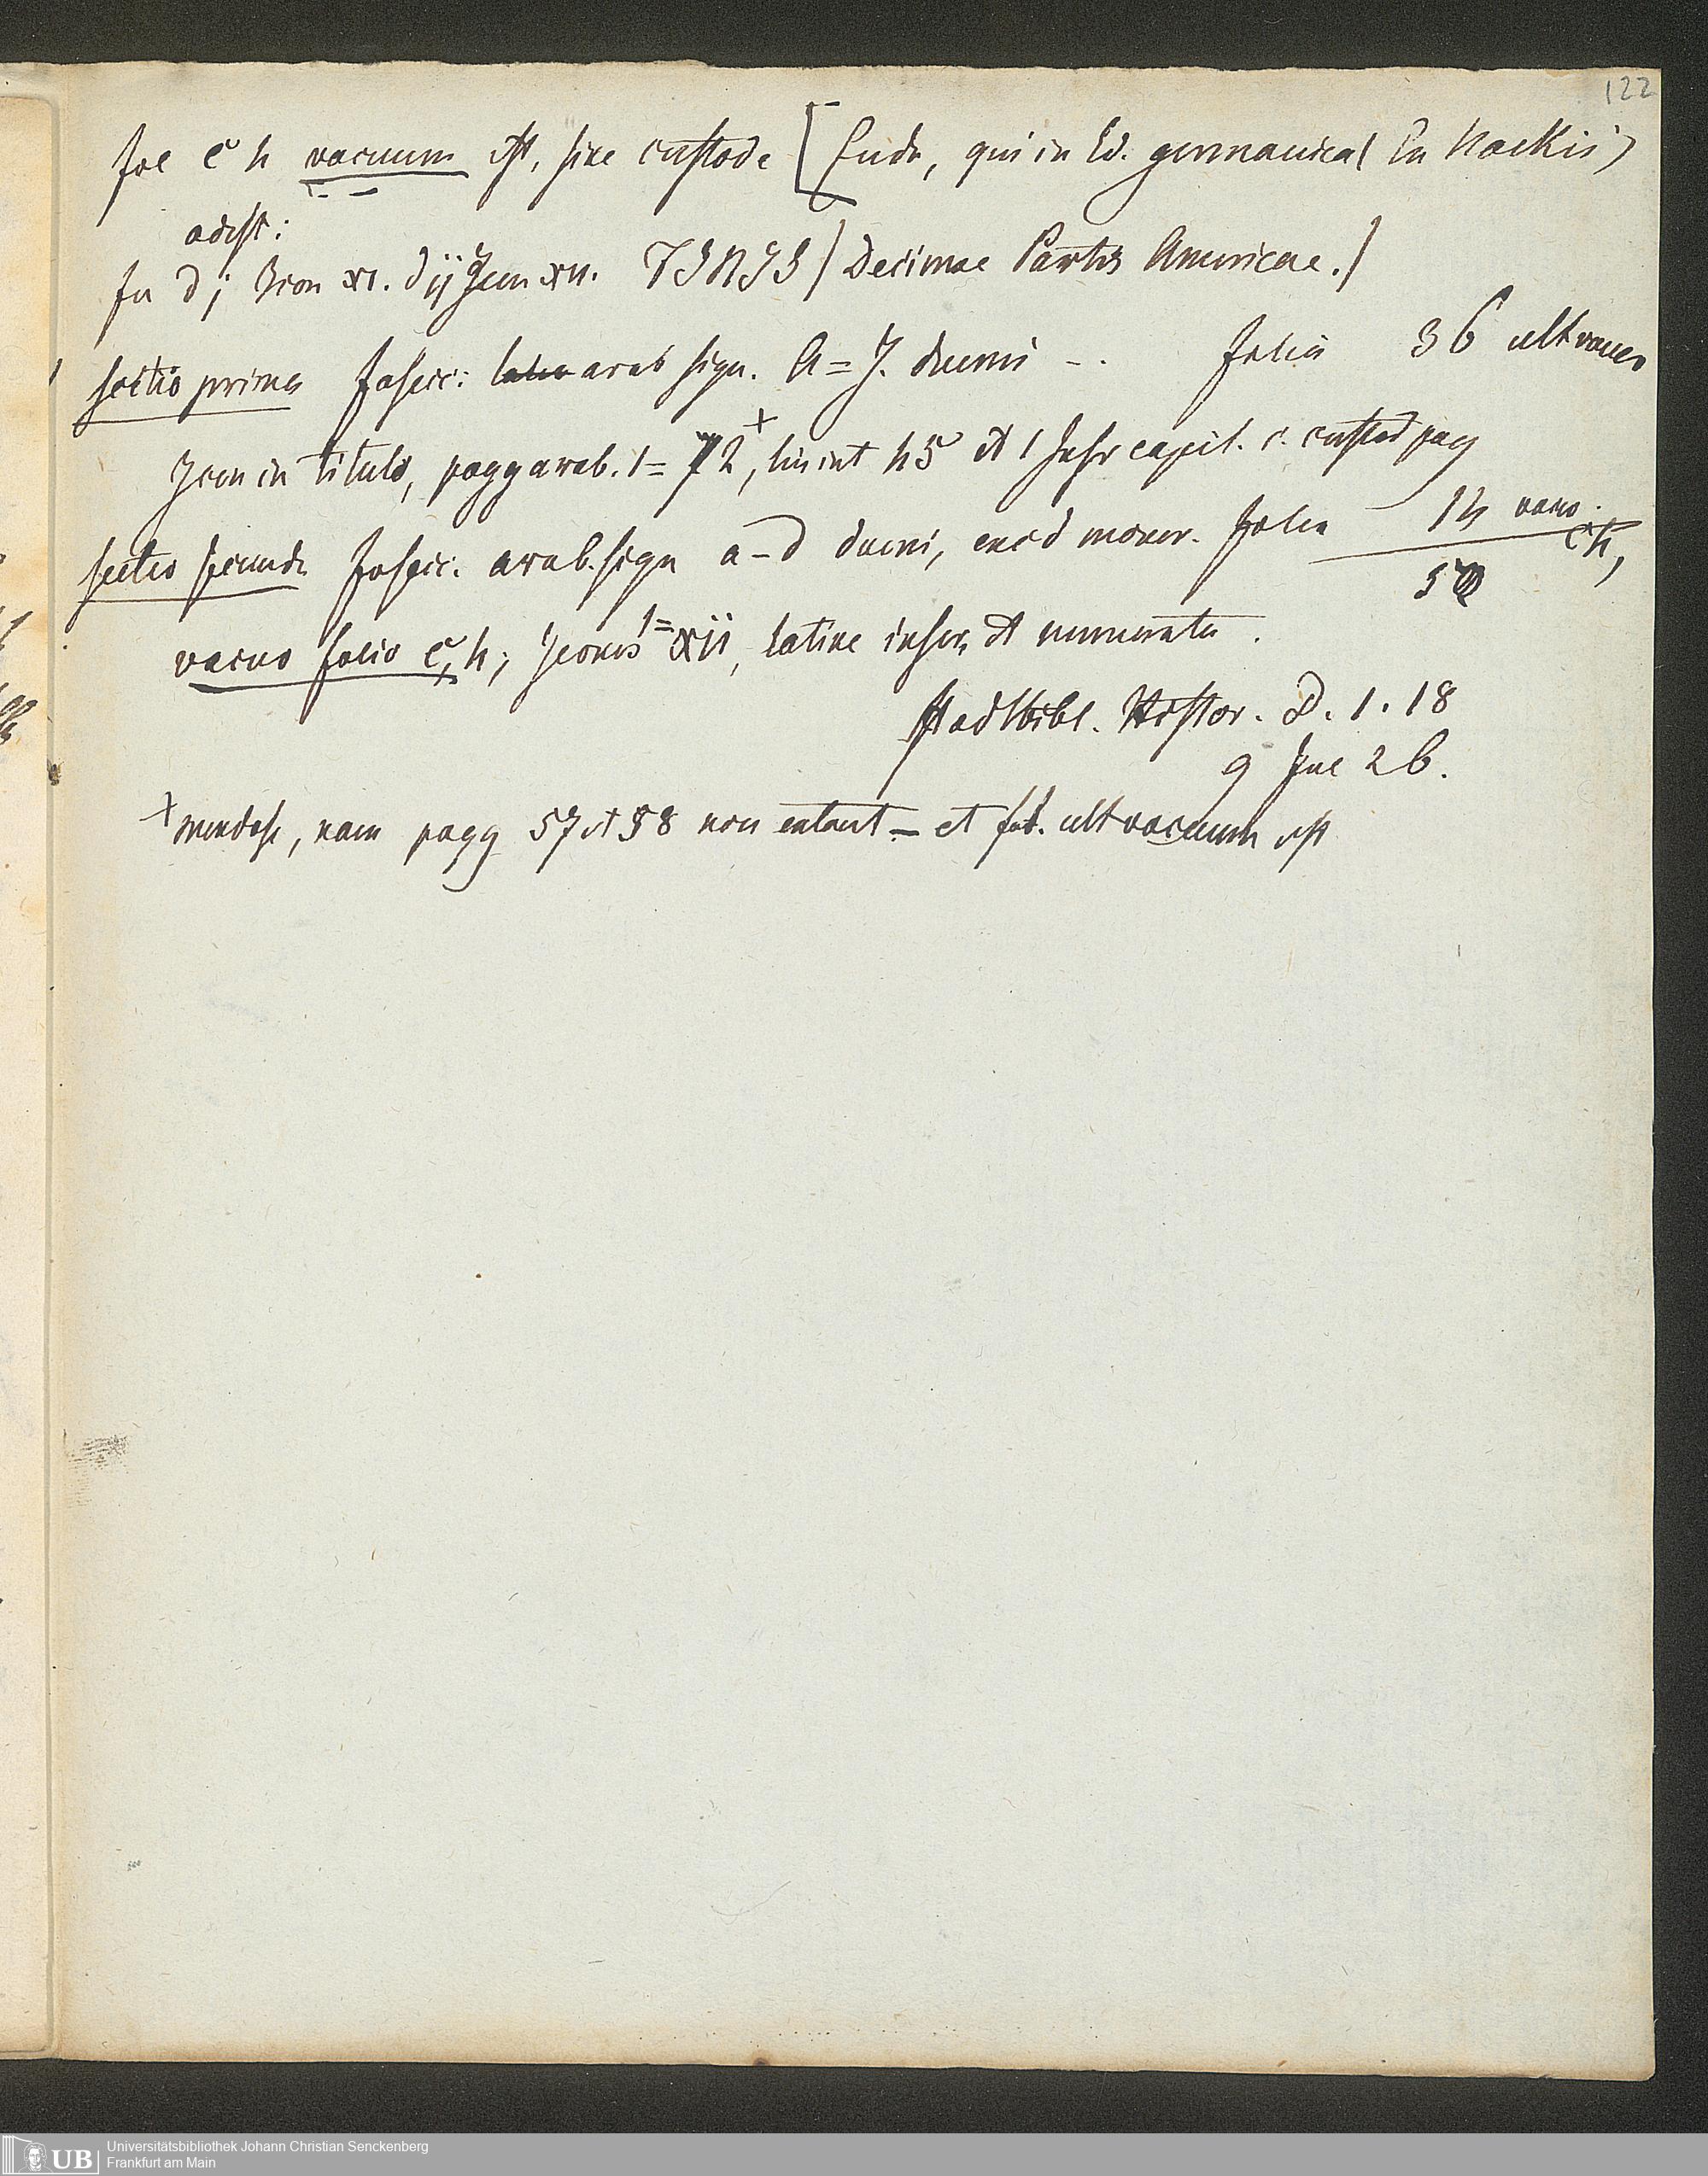 122
fol c 4 vacuum est, sine custode [Ende, qui in Ed. germanica (
adest:
in d j Icon xi. d ij Icon xii. FINIS / Decimae Partis Americae. /
sectio prima fascic: arab sign. A = J. duerni - . folia 36 ult vacuo
Icon in titulo, pagg arab. 1 = 72 +, lin int 45 et 1 capit. c. custod pag
sectio secunda fascic. arab. sign a - d duerni, folia 14 vacuo
c 4,
50
vacuo folio c, 4; Icones 1 = xii, latine inscr, et numerata.
Stadtbibl. Histor. D. 1. 18
9 Jul 26.
+ mendose, nam pagg 57 et 58 non extant - et fol. ult vacuum est
UB Universitätsbibliothek Johann Christian Senckenberg
Frankfurt am Main